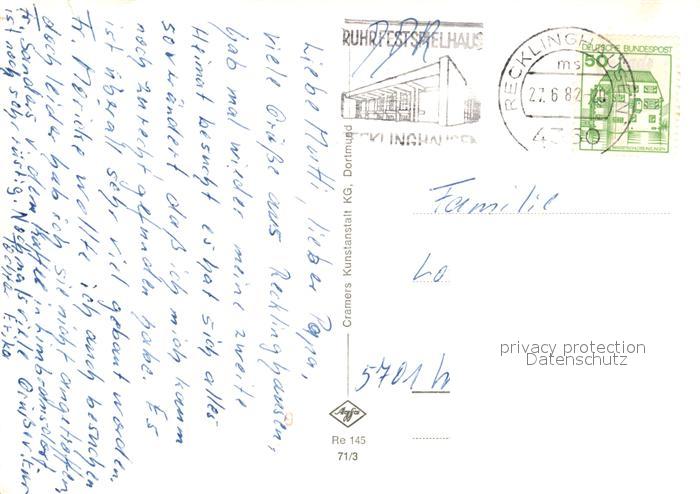 Liebe Mutti, lieber Papa,
viele Grüße aus Recklinghausen,
hab mal wieder meine zweite
Heimat besucht es hat sich alles
so verändert daß ich mich kaum
noch zurecht gefunden habe. Es
ist überall sehr viel gebaut worden.
Fr. Moricke wollte ich auch besuchen
doch leider hab ich sie nicht angetroffen
Fr. Sandus
ist noch sehr rüstig. Nochmals viele Grüße v. Eurer
Tochter Erika
Cramers Kunstanstalt KG, Dortmund
DDR
RUHRFESTSPIELHAUS
RECKLINGHAUSEN
RECKLINGHAUSEN
ms
27.6.82
4350
DEUTSCHE BUNDESPOST
50
Familie
Lo
privacy protection
Datenschutz
5701 W
Agfa
Re 145
71/3